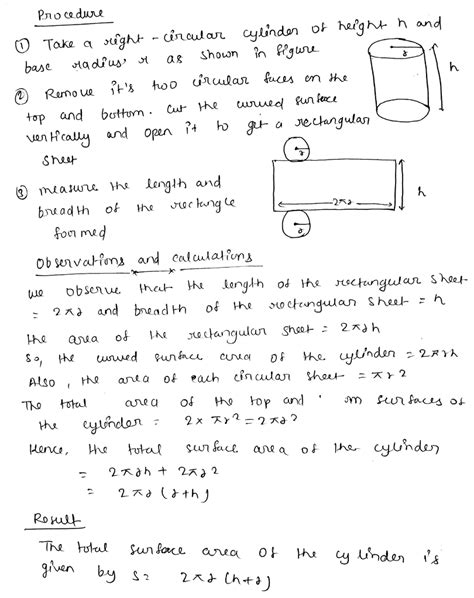 Procedure
① Take a right-circular cylinder of height h and
base radius r as shown in figure
r
h
② Remove it's two circular faces on the
top and bottom. Cut the curved surface
vertically and open it to get a rectangular
sheet
③ measure the length and
breadth of the rectangle
formed
r
2πr
h
r
Observations and calculations
we observe that the length of the rectangular sheet
= 2πr and breadth of the rectangular sheet = h
the area of the rectangular sheet = 2πrh
So, the curved surface area of the cylinder = 2πrh
Also, the area of each circular sheet = πr2
The total area of the top and m surfaces of
the cylinder = 2 x πr2 = 2πr2
Hence, the total surface area of the cylinder
= 2πrh + 2πr2
= 2πr (r+h)
Result
The total surface area of the cylinder is
given by S= 2πr (h+r)